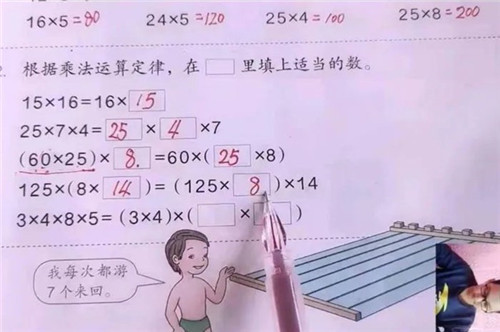 16×5=80 24×5=120 25×4=100 25×8=200
根据乘法运算定律，在□里填上适当的数。
15×16=16×15
25×7×4=25×4×7
(60×25)×8=60×(25×8)
125×(8×14)=(125×8)×14
3×4×8×5=(3×4)×(□×□)
我每次都游
7个来回。